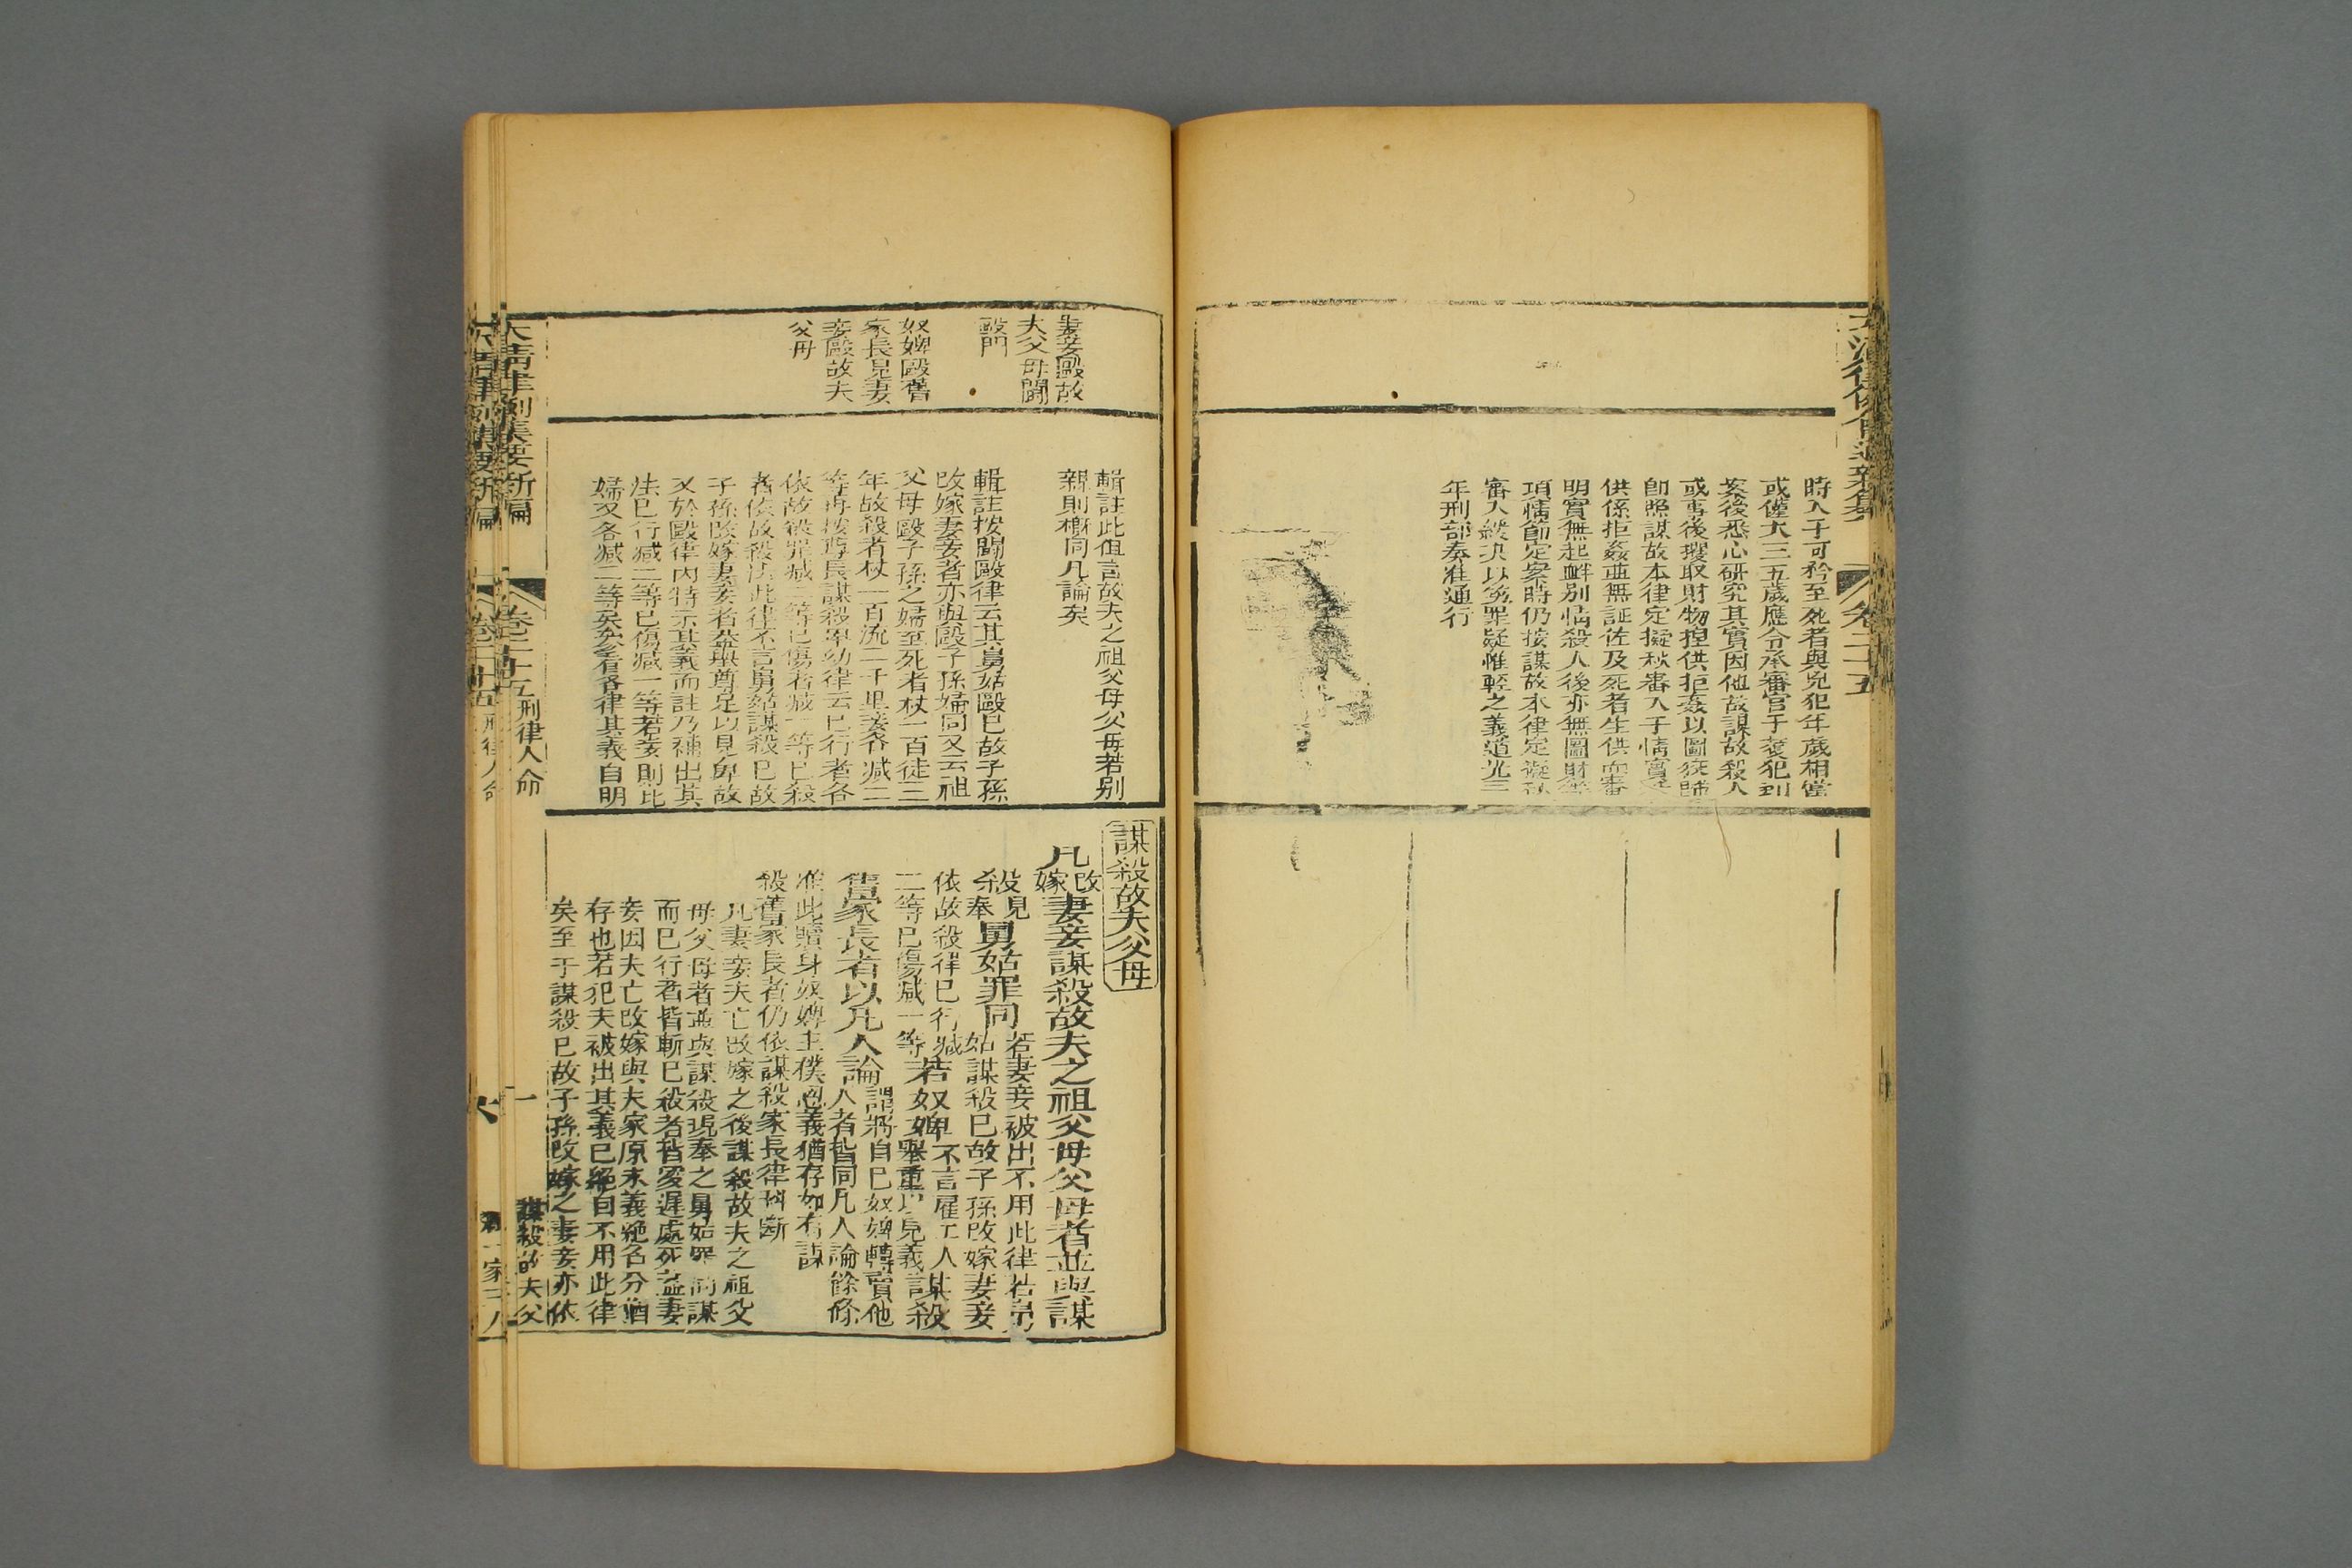 時入于可矜至死者與兇犯年歲相當
或僅大三五歲應令承審官于獲犯到
案後悉心研究其實因他故謀故殺人
或事後攫取財物捏供拒姦以圖狡
即照謀故本律定擬秋審入于情實
供係拒姦並無証佐及死者生供而審
明實無起衅別情殺人後亦無圖財等
項情節定案時仍按謀故本律定擬秋
審入緩決以符罪疑惟輕之義道光三
年刑部奏准通行
卷二十五
妻妾毆故
夫父母鬭
毆門
奴婢毆舊
家長見妻
妾毆故夫
父母
輯註此但言故夫之祖父母父母若別
親則概同凡論矣
輯註按鬭毆律云其舅姑毆已故子孫
改嫁妻妾者亦與毆子孫婦同又云祖
父母毆子孫之婦至死者杖一百徒三
年故殺者杖一百流二千里妾各減二
等再按尊長謀殺卑幼律云已行者各
依故殺罪減二等已傷者減一等已殺
者依故殺法此律不言舅姑謀殺已故
子孫改嫁妻妾者蓋舉尊足以見卑故
又於毆律內特示其義而註乃補出其
法已行減二等已傷減一等若妾則比
婦又各減二等矣各有各律其義自明
謀殺故夫父母
凡改嫁妻妾謀殺故夫之祖父母父母者並與謀
殺見奉舅姑罪同若妻妾被出不用此律若舅姑謀殺已故子孫改嫁妻妾
依故殺律已行減二等已傷減一等若奴婢不言雇工人舉重以見義謀殺
舊家長者以凡人論謂將自己奴婢轉賣他人者皆同凡人論餘條
准此贖身奴婢主僕恩義猶存如有謀
殺舊家長者仍依謀殺家長律科斷
凡妻妾夫亡改嫁之後謀殺故夫之祖父
母父母者並與謀殺現奉之舅姑罪同謀
而已行者皆斬已殺者皆凌遲處死蓋妻
妾因夫亡改嫁與夫家原未義絕名分猶
存也若犯夫被出其義已絕自不用此律
矣至于謀殺已故子孫改嫁之妻妾亦依
大清律例集要新編
卷二十五
刑律人命
一
謀殺故夫父